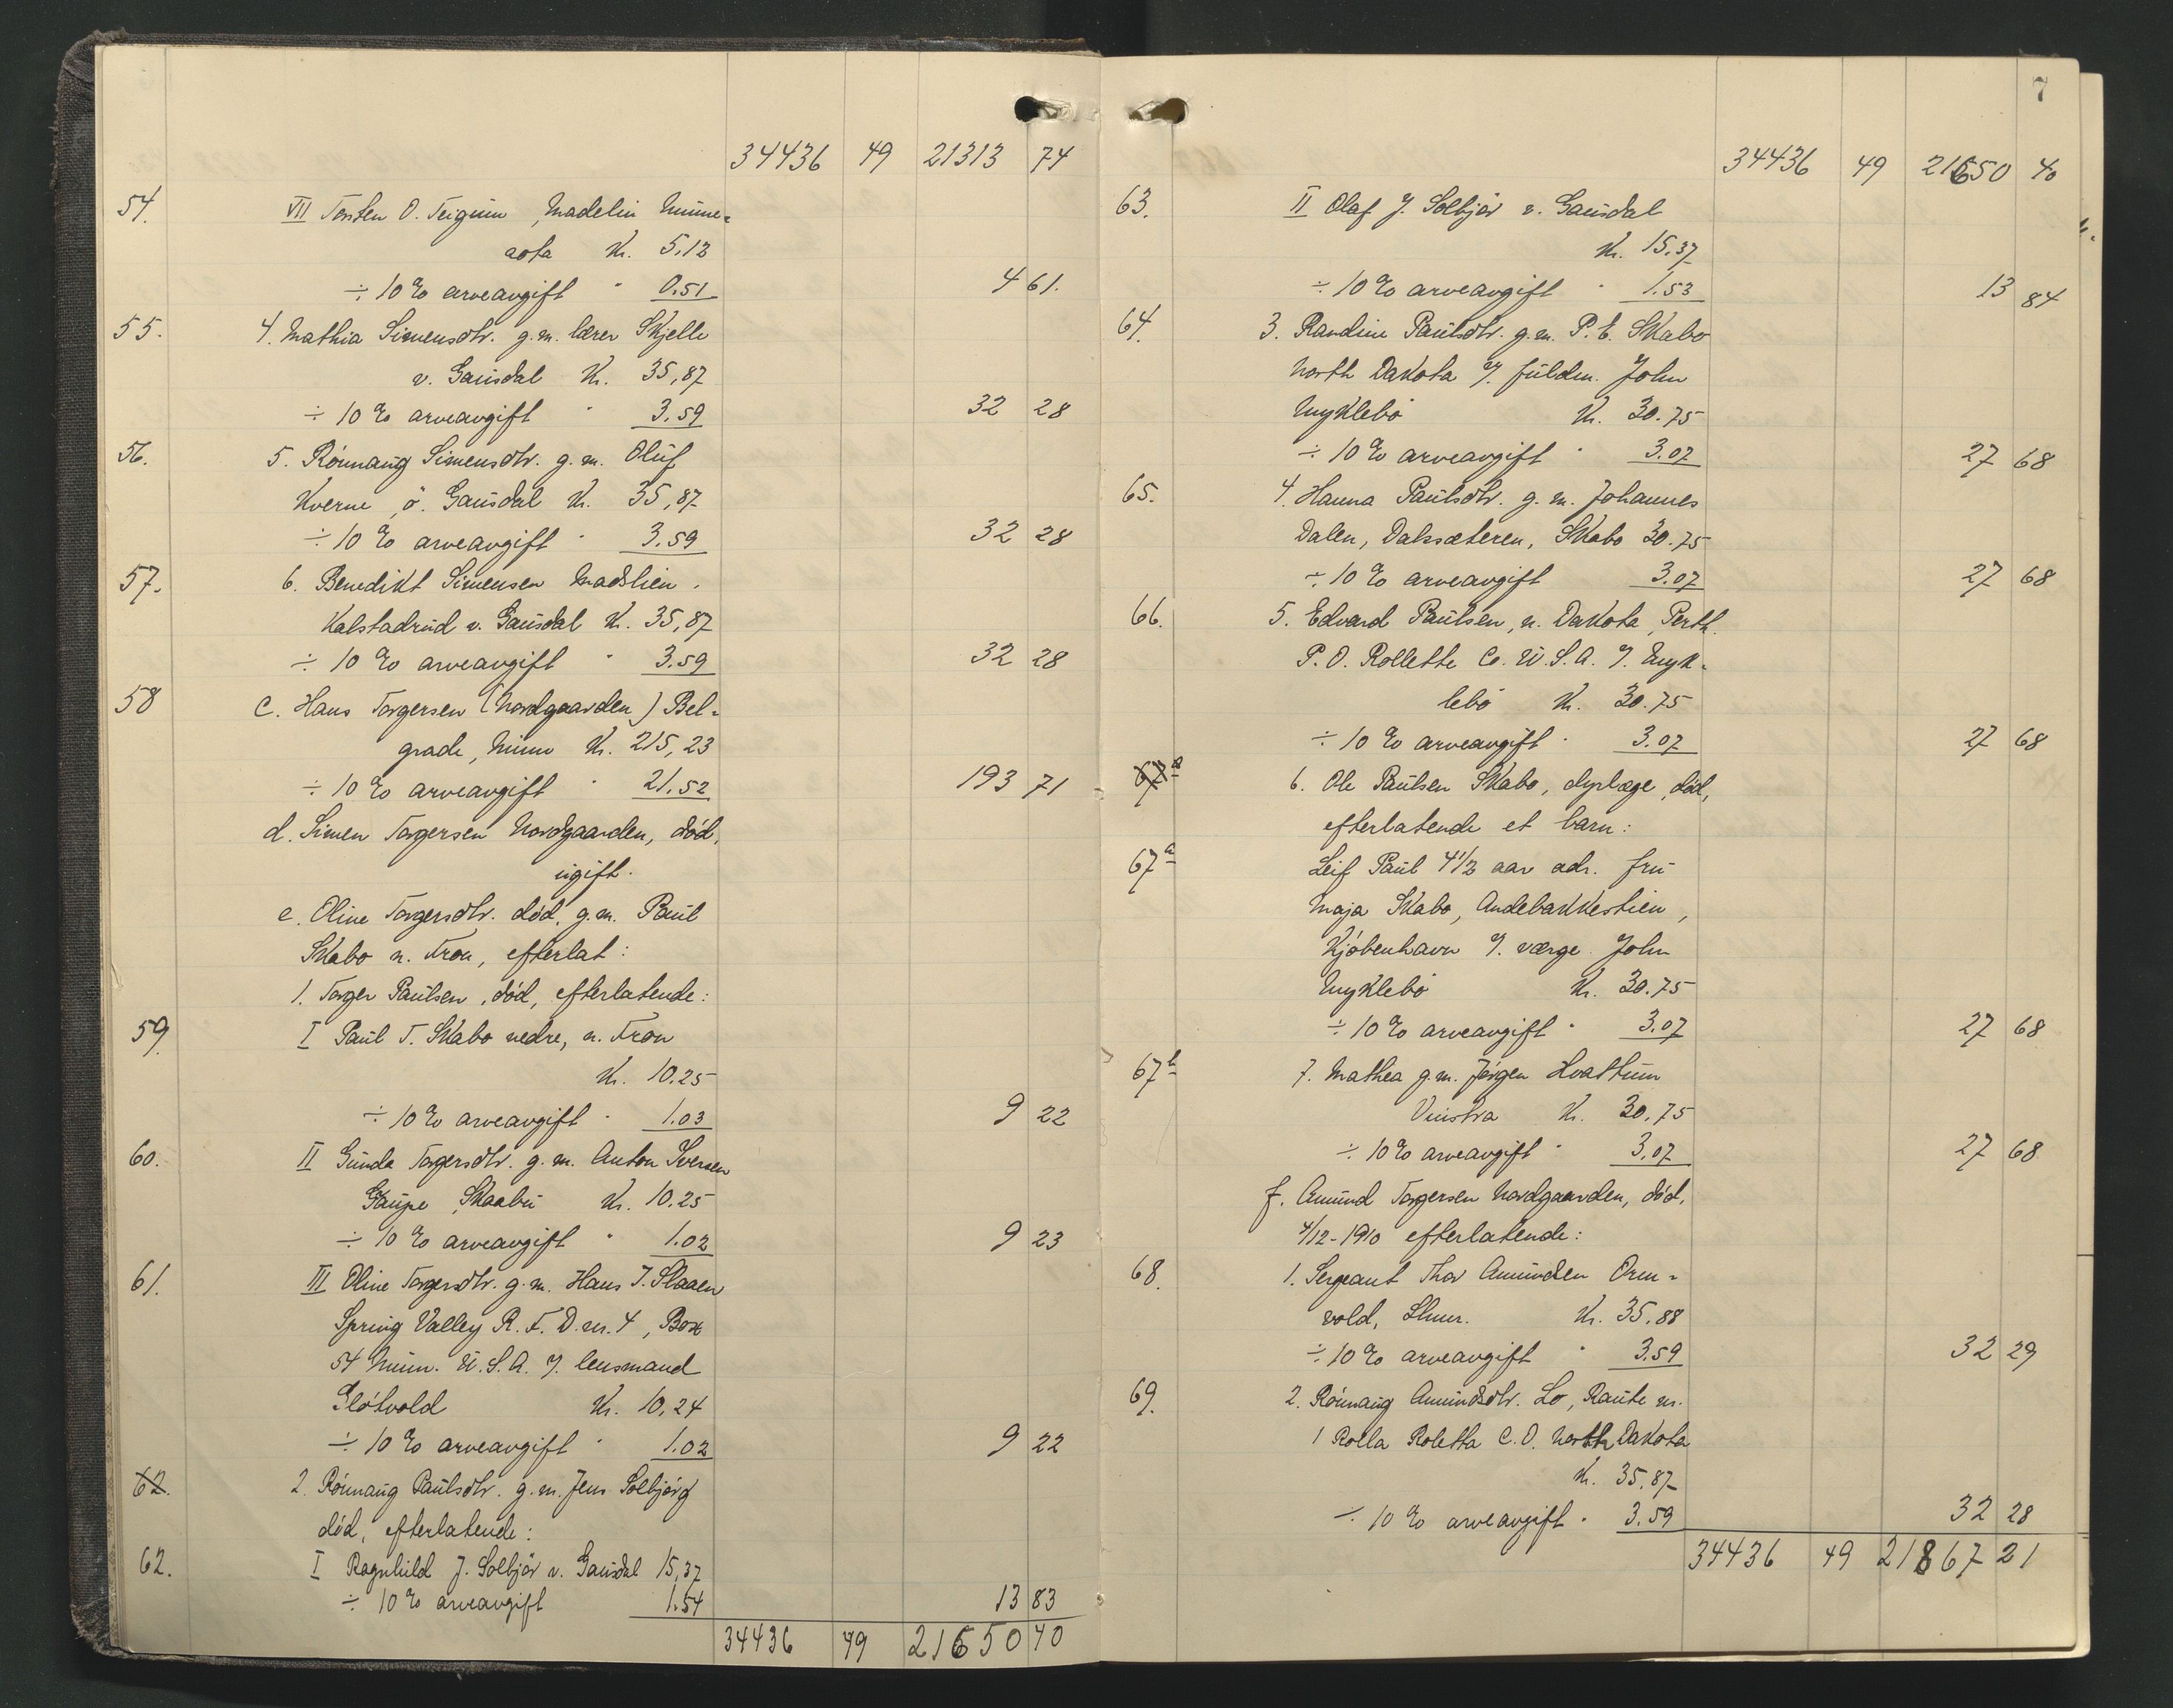 34436 49 21313 74
54. VII Torsten O. Teigum, Madelin Minne-
sota Kr. 5.12
÷ 10 % arveavgift " 0.51 4 61.
55. 4. Mathia Simensdtr. g.m. lærer Skjelle
v. Gausdal Kr. 35,87
÷ 10 % arveavgift " 3.59 32 28
56. 5. Rönnaug Simensdtr. g.m. Oluf
Kverne, ö. Gausdal Kr. 35,87
÷ 10 % arveavgift " 3.59 32 28
57. 6. Benedikt Simensen Madslien.
Kalstadrud v. Gausdal Kr. 35,87
÷ 10 % arveavgift " 3.59 32 28
58 c. Hans Torgersen (Nordgaarden) Bel-
grade, Minn Kr. 215,23
÷ 10 % arveavgift " 21.52 193 71
d. Simen Torgersen Nordgaarden, död,
ugift.
e. Oline Torgersdtr. död, g.m. Paul
Skabo n. Fron, efterlat:
1. Torger Paulsen, död, efterlatende:
59. I Paul T. Skabo nedre, n. Fron
Kr. 10.25
÷ 10 % arveavgift " 1.03 9 22
60. II Gunda Torgersdtr. g.m. Anton Iversen
Gaupe, Skaabu Kr. 10.25
÷ 10 % arveavgift " 1.02 9 23
61. III Oline Torgersdtr. g.m. Hans J. Slaaen
Spring Valley R. F. D. nr. 4, Box
54 Minn. U.S.A. V. lensmand
Glötvold Kr. 10,24
÷ 10 % arveavgift " 1.02 9 22
62. 2. Rönnaug Paulsdtr. g.m. Jens Solbjörg
död, efterlatende:
62. I Ragnhild J. Solbjör v. Gausdal 15,37
÷ 10 % arveavgift 1.54 13 83
34436 49 21650 40
7
34436 49 21650 40
63. II Olaf J. Solbjör v. Gausdal
Kr. 15,37
÷ 10 % arveavgift " 1.53 13 84
64. 3. Randine Paulsdtr. g.m. P. E. Skabo
North Dakota V. fuldm. John
Nyklebö Kr. 30.75
÷ 10 % arveavgift " 3.07 27 68
65. 4. Hanna Paulsdtr. g.m. Johannes
Dalen, Dalssæteren, Skabo 30.75
÷ 10 % arveavgift 3.07 27 68
66. 5. Edvard Paulsen, n. Dakota, Perth.
P. O. Rollette Co. U.S.A. V. Nyk-
lebö Kr. 30.75
÷ 10 % arveavgift " 3.07 27 68
67a 6. Ole Paulsen Skabo, dyrlæge, död,
efterlatende et barn:
67a Leif Paul 4 1/2 aar adr. fru
Maja Skabo, Andebakkestien,
Kjöbenhavn V. værge John
Nyklebö Kr. 30.75
÷ 10 % arveavgift " 3.07 27 68
67b 7. Mathea g.m. Jörgen Hvattum
Vinstra Kr. 30.75
÷ 10 % arveavgift " 3.07 27 68
f. Amund Torgersen Nordgaarden, död,
4/12-1910 efterlatende:
68. 1. Sergeant Thor Amundsen Orm-
vold, Lhmr. Kr. 35.88
÷ 10 % arveavgift " 3.59 32 29
69. 2. Rönnaug Amundsdtr. Lo, Raute nr.
1 Rolla Roletta C. O. North Dakota
Kr. 35,87
÷ 10 % arveavgift " 3.59 32 28
34436 49 21867 21